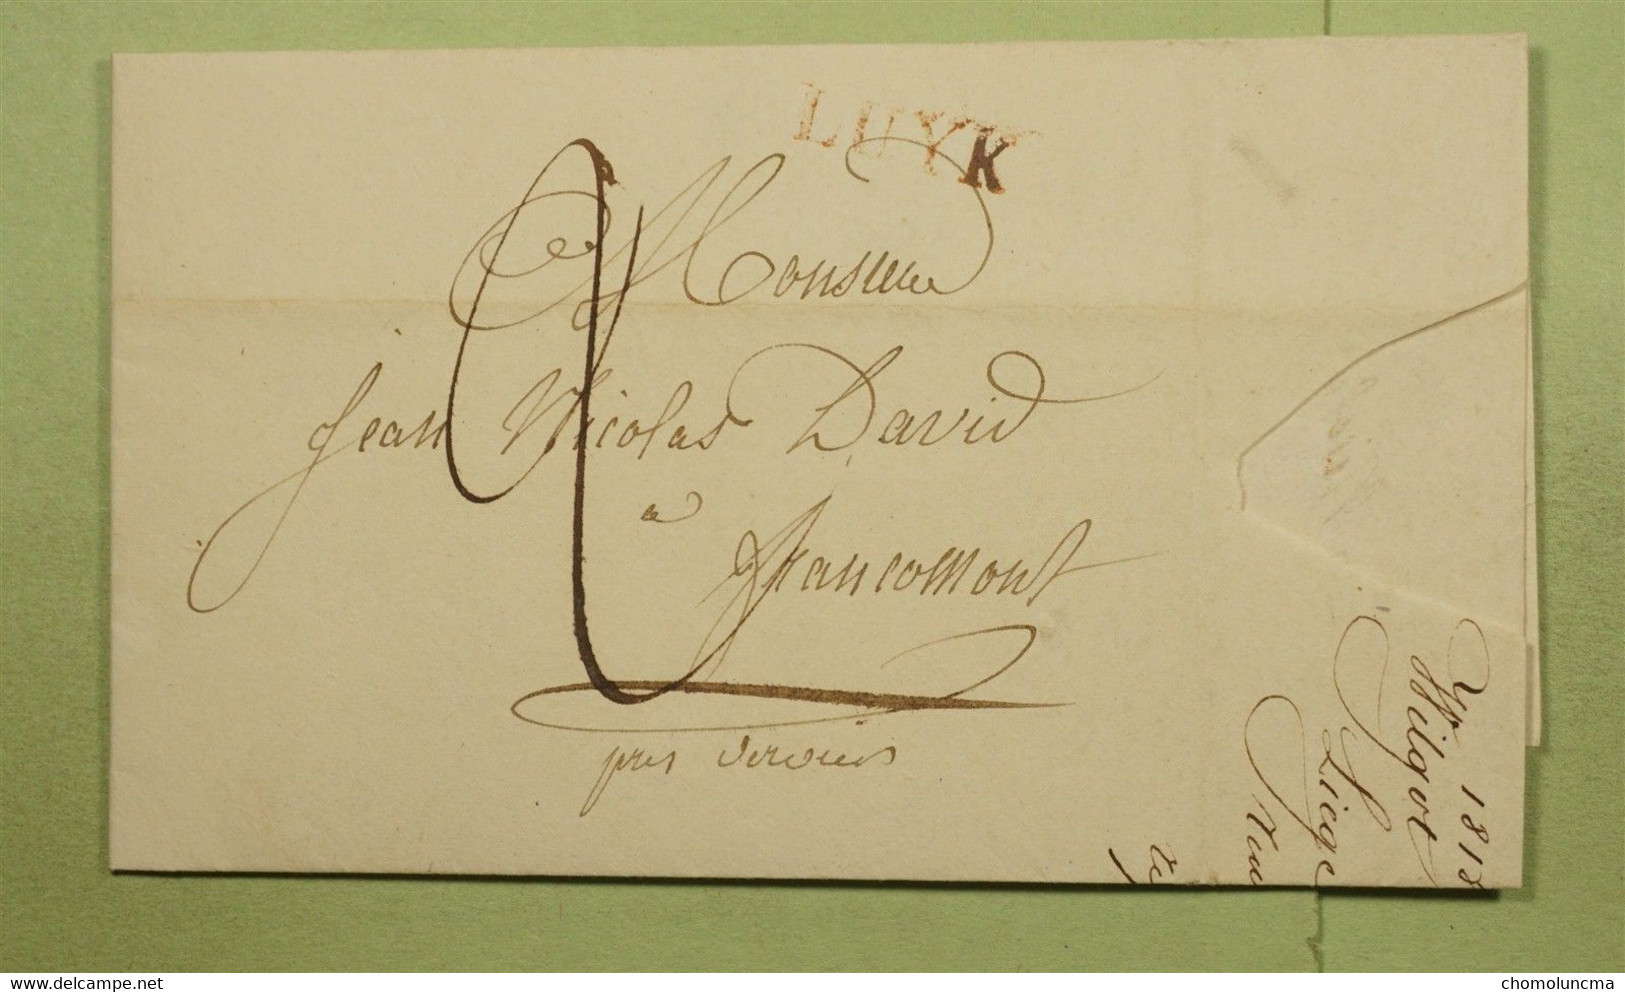 LUYK
Monsieur
Jean Nicolas David
a
francomont
pres Verviers
1818
Wilgot
Liege
delcampe.net
chomoluncma